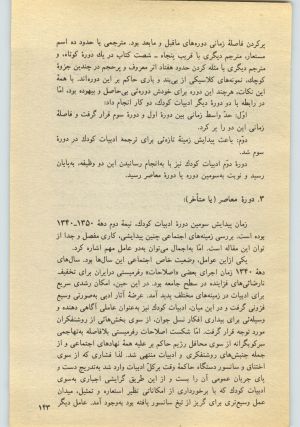 پرکردن فاصلهٔ زمانی دوره‌های ماقبل و مابعد بود. مترجمی با حدود ده اسم
مستعار، مترجم دیگری با قریب پنجاه ـ شصت کتاب در یك دورهٔ کوتاه، و
مترجم دیگری با مثله کردن حدود هفتاد اثر معروف و پرحجم در چندین جزوهٔ
کوچك، نمونه‌های کلاسیکی از بی‌بند و باری حاکم بر این دوره‌اند. با همهٔ
این نکات، هرچند این دوره برای خودش دوره‌ئی بی‌حاصل و بیهوده بود، امّا
در رابطه با دو دورهٔ دیگر ادبیات کودك، دو کار انجام داد:
اوّل: حدّ واسط زمانی بین دورهٔ اول و دورهٔ سوم قرار گرفت و فاصلهٔ
زمانی این دو را پر کرد.
دوّم: باعث پیدایش زمینهٔ تازه‌ئی برای ترجمهٔ ادبیات کودك در دورهٔ
سوم شد.
دورهٔ دوّم ادبیات کودك نیز با به‌انجام رسانیدن این دو وظیفه، به‌پایان
رسید و نوبت به‌سومین دوره یا دورهٔ معاصر رسید.
۳. دورهٔ معاصر (یا متأخر):
زمان پیدایش سومین دورهٔ ادبیات کودك، نیمهٔ دوم دههٔ ۱۳۵۰ـ۱۳۴۰
بوده است. بررسی زمینه‌های اجتماعی چنین پیدایشی، کاری مفصل و جدا از
توان این مقاله است. امّا به‌اجمال می‌توان به‌دو عامل مهم اشاره کرد.
یکی ازاین عوامل، وضعیت خاص اجتماعی این سال‌ها بود. سال‌های
دههٔ ۱۳۴۰ زمان اجرای بعضی «اصلاحات» رفرمیستی درایران برای تخفیف
نارضائی‌های فزاینده در سطح جامعه بود. در این حین، امکان رشدی سریع
برای ادبیات در زمینه‌های مختلف پدید آمد. عرضهٔ آثار ادبی به‌صورتی وسیع
فزونی گرفت و در این میان، ادبیات کودك نیز به‌عنوان عاملی آگاهی دهنده و
وسیله‌ئی برای بیداری افکار نسل جوان، از سوی بخش‌هائی از روشنفکران
مورد توجه قرار گرفت. امّا شکست اصلاحات رفرمیستی بلافاصله به‌تهاجمی
سرکوبگرانه از سوی محافل رژیم حاکم بر علیه همهٔ نهادهای اجتماعی و از
جمله جنبش‌های روشنفکری و ادبیات منتهی شد. لذا فشاری که از سوی
اختناق و سانسور دستگاه حاکمهٔ وقت برکلّ ادبیات وارد شد به‌تدریج دست و
پای جریان عمومی آن را بست و از این طریق گرایشی اجباری به‌سوی
ادبیات کودك که با برخورداری از امکاناتی نظیر استعاره و تمثیل، میدان
عمل وسیع‌تری برای گریز از تیغ سانسور یافته بود به‌وجود آمد. عامل دیگر
۱۴۳